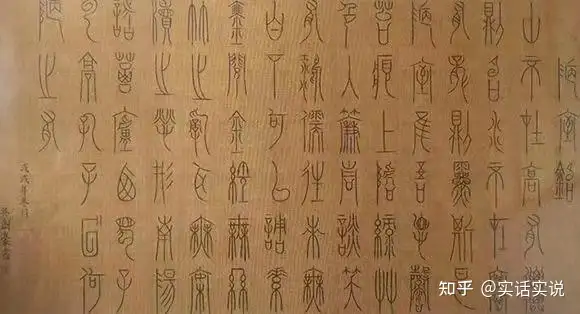 陋室銘
山不在高有僊
則名水不在深
有龍則靈斯是
陋室惟吾德馨
苔痕上階綠艸
色入簾青談笑
有鴻儒往來無
白丁可以調素
琴閱金經無絲
竹之亂耳無案
牘之勞形南陽
諸葛廬西蜀子
雲亭孔子曰何
陋之有
戊戌年
知乎 @实话实说